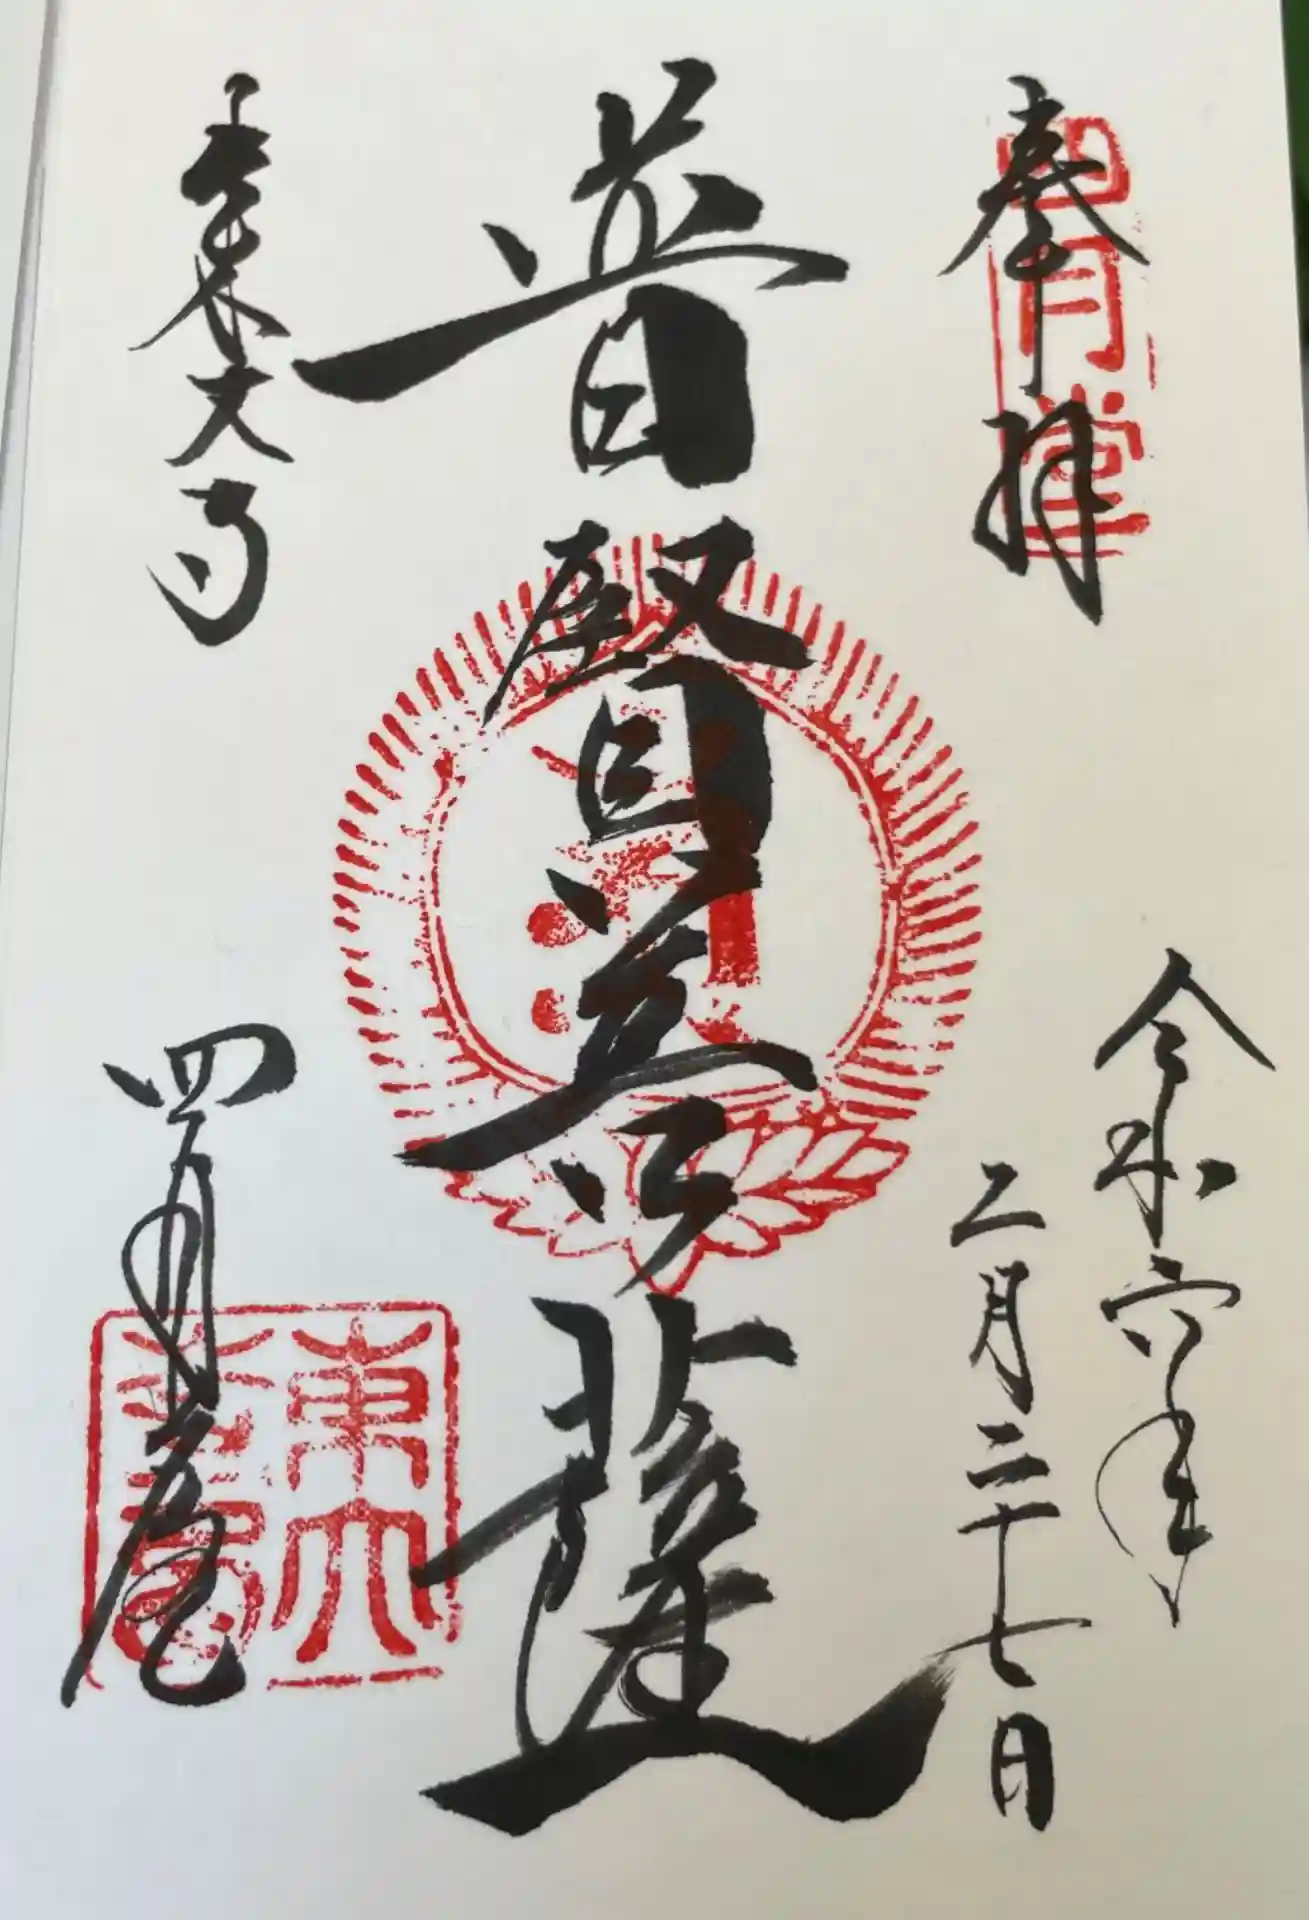 奉拝
四月堂
令和六年
二月二十七日
普賢菩薩
東大寺
四月堂
東大
華厳